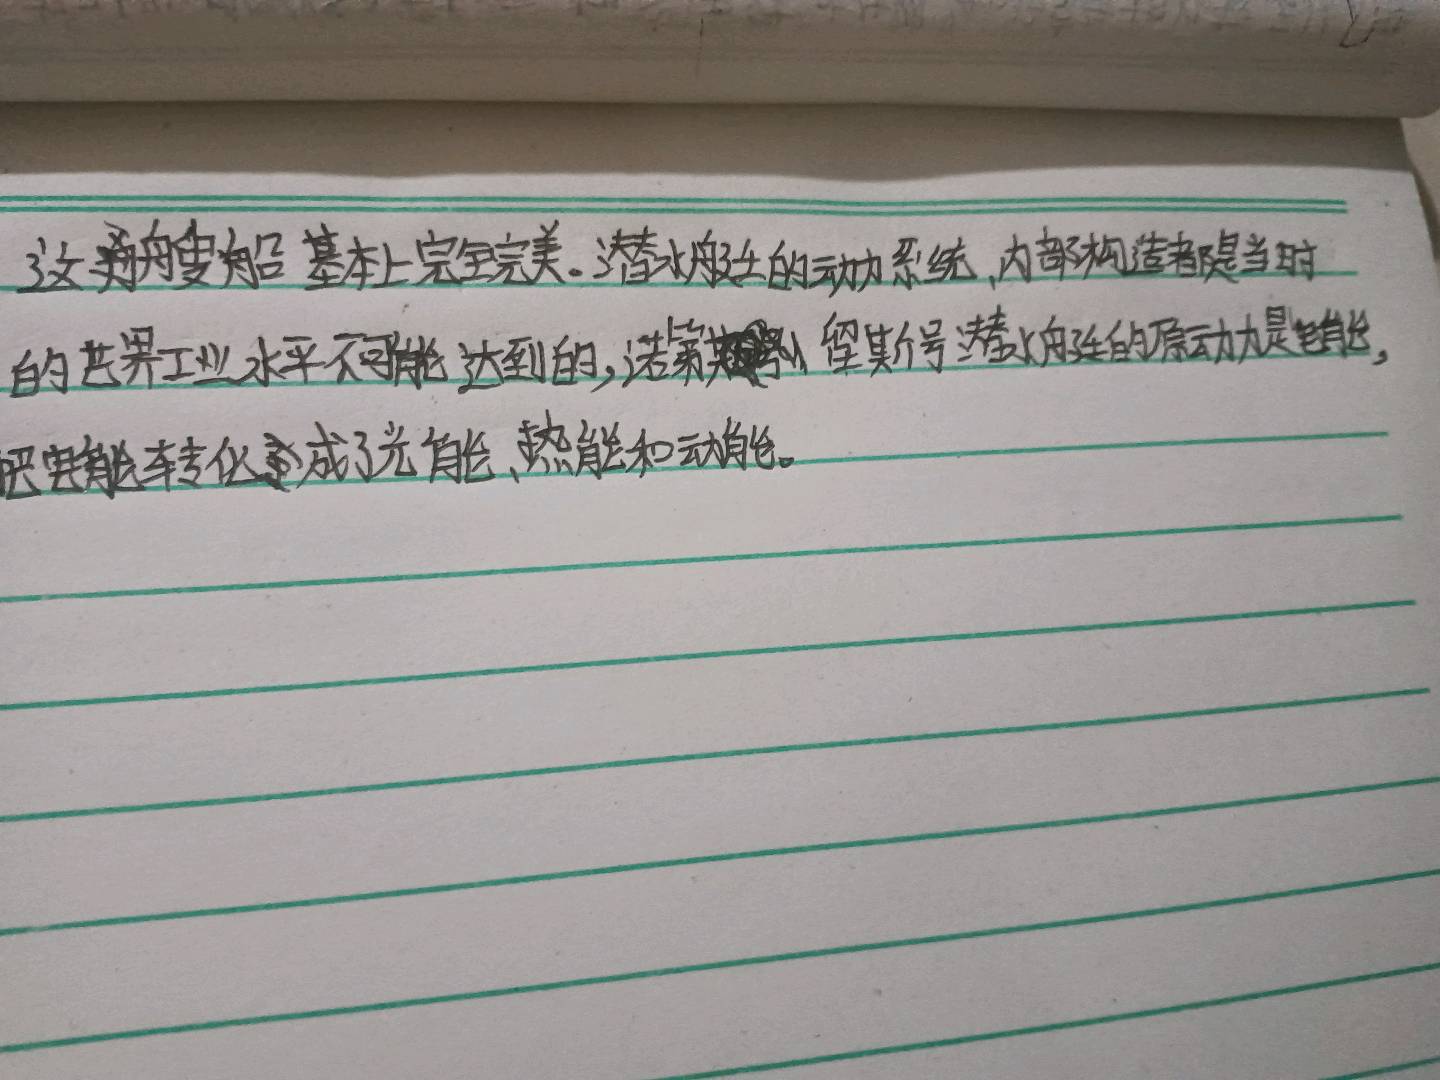 这艘船基本上完全完美。潜水舰艇的动力系统、内部构造都是当时
的世界工业水平不可能达到的，诺第留斯号潜水舰艇的原动力是电能，
把电能转化成了光能、热能和动能。